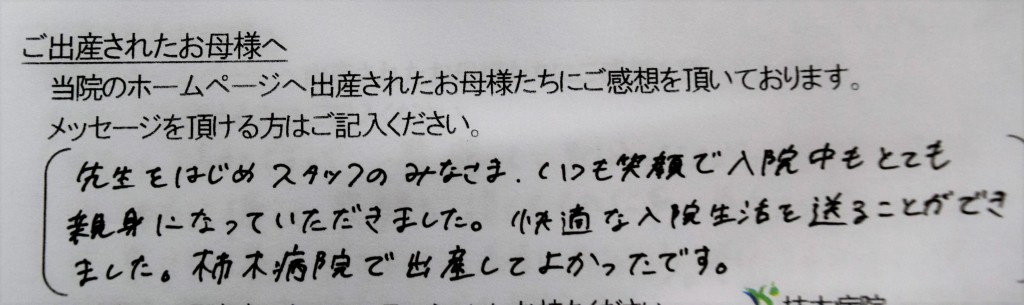 ご出産されたお母様へ
当院のホームページへ出産されたお母様たちにご感想を頂いております。
メッセージを頂ける方はご記入ください。
先生をはじめスタッフのみなさま、いつも笑顔で入院中もとても
親身になっていただきました。快適な入院生活を送ることができ
ました。柿木病院で出産してよかったです。